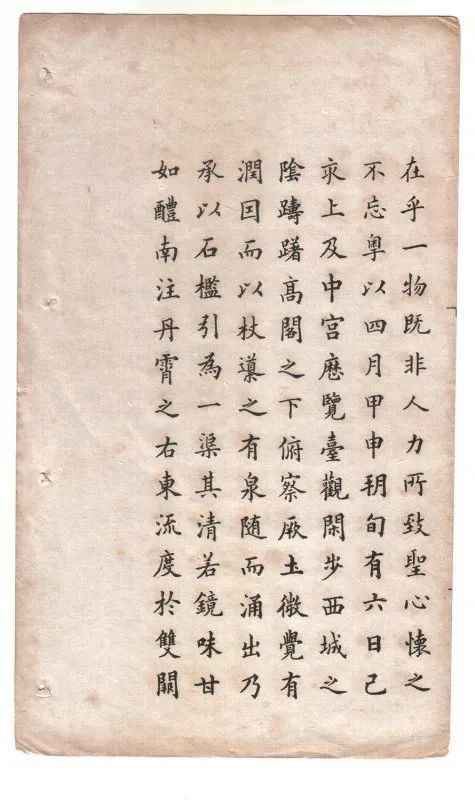 在乎一物既非人力所致聖心懷之
不忘粤以四月甲申朔旬有六日己
亥上及中宫歷覽臺觀閑步西城之
陰躊躇髙閣之下俯察厥土微覺有
潤囙而以杖導之有泉随而涌出乃
承以石檻引為一渠其清若鏡味甘
如醴南注丹霄之右東流度於雙闕